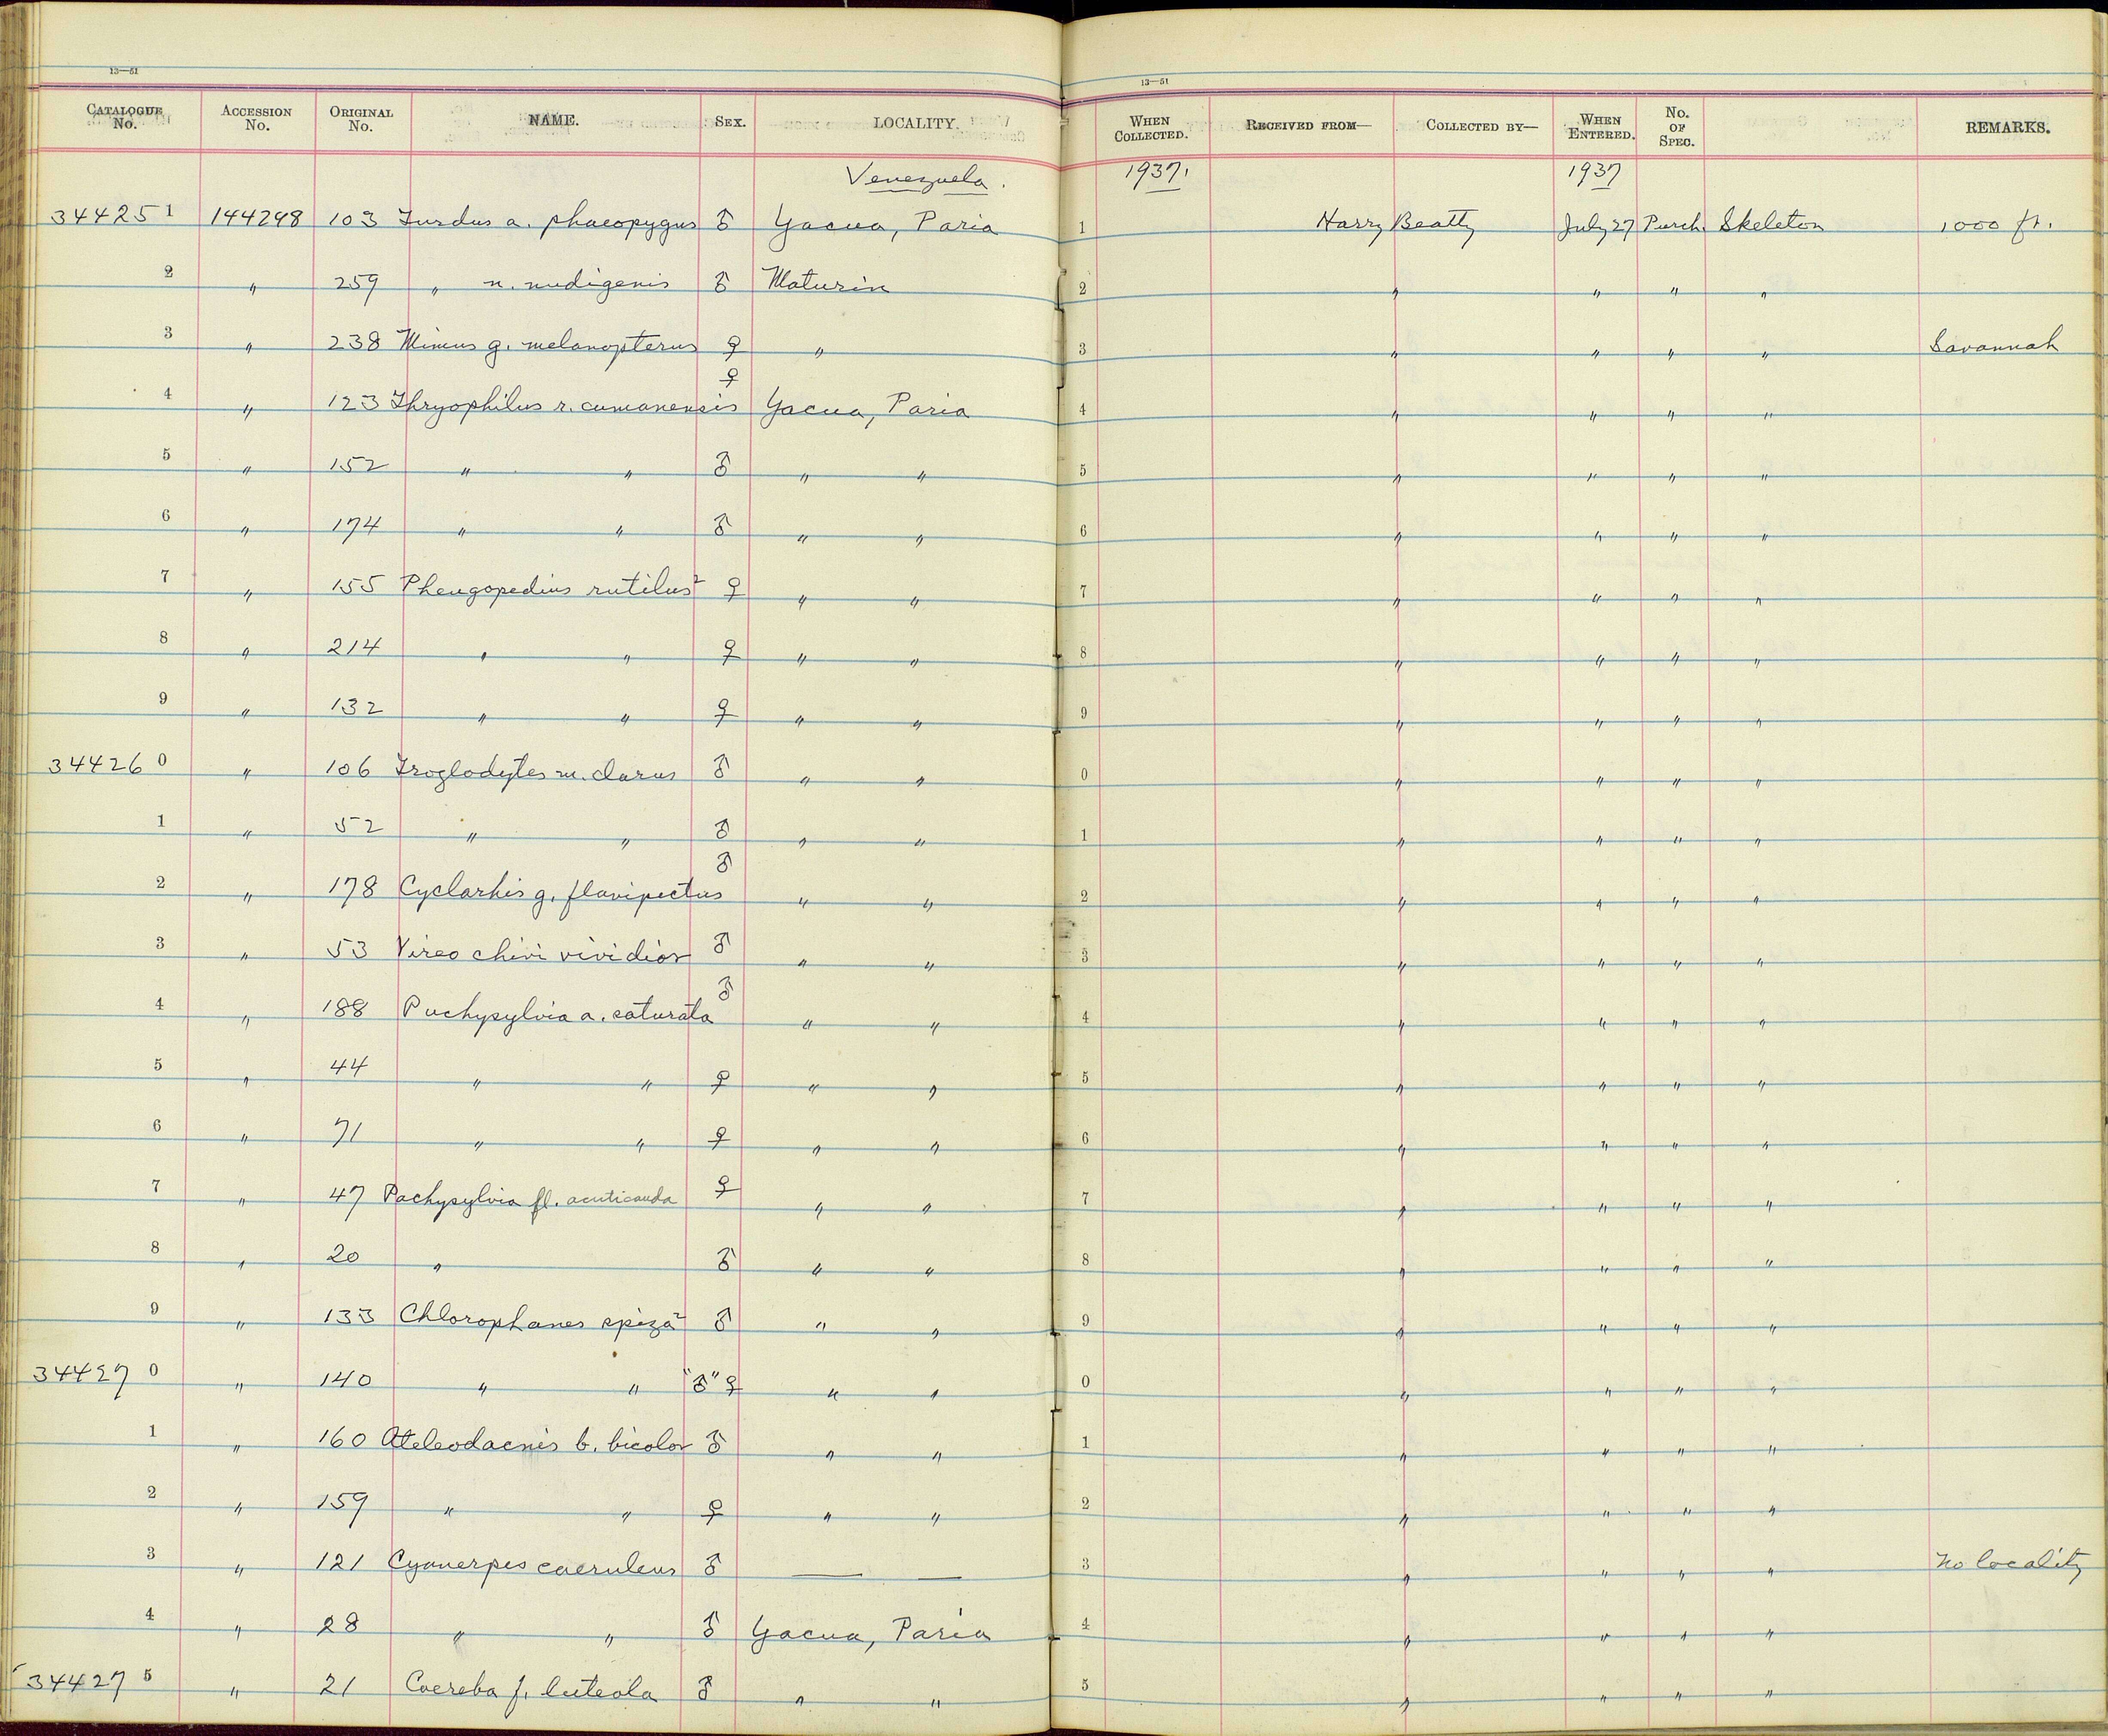 13—51 13—51
CATALOGUE No. ACCESSION No. ORIGINAL No. NAME. SEX. LOCALITY. WHEN COLLECTED. RECEIVED FROM— COLLECTED BY— WHEN ENTERED. No. OF SPEC. REMARKS.
Venezuela. 1937. 1937
344251 144248 103 Turdus a. phaeopygus ♂ Yacua, Paria 1 Harry Beatty July 27 Purch. Skeleton 1000 ft.
2 " 259 " n. nudigenis ♂ Maturin 2 " " " "
3 " 238 Mimus g. melanopterus ♀ " 3 " " " " Savannah
4 " 123 Thryophilus r. cumanensis ♀ Yacua, Paria 4 " " " "
5 " 152 " " ♂ " " 5 " " " "
6 " 174 " " ♂ " " 6 " " " "
7 " 155 Pheugopedius rutilus² ♀ " " 7 " " " "
8 " 214 " " ♀ " " 8 " " " "
9 " 132 " " ♀ " " 9 " " " "
344260 " 106 Troglodytes m. clarus ♂ " " 0 " " " "
1 " 52 " " ♂ " " 1 " " " "
2 " 178 Cyclarhis g. flavipectus ♂ " " 2 " " " "
3 " 53 Vireo chivi vividior ♂ " " 3 " " " "
4 " 188 Pachysylvia a. saturata ♂ " " 4 " " " "
5 " 44 " " ♀ " " 5 " " " "
6 " 71 " " ♀ " " 6 " " " "
7 " 47 Pachysylvia fl. acuticauda ♀ " " 7 " " " "
8 " 20 " ♂ " " 8 " " " "
9 " 133 Chlorophanes spiza² ♂ " " 9 " " " "
344270 " 140 " " "♂" ♀ " " 0 " " " "
1 " 160 Ateleodacnis b. bicolor ♂ " " 1 " " " "
2 " 159 " " ♀ " " 2 " " " "
3 " 121 Cyanerpes caeruleus ♂ — — 3 " " " " No locality
4 " 28 " " ♂ Yacua, Paria 4 " " " "
344275 " 21 Coereba f. luteola ♂ " " 5 " " " "